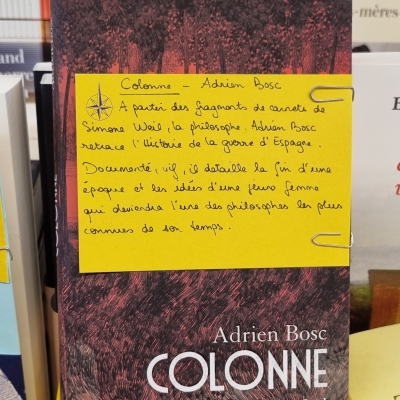 Colonne - Adrien Bosc
A partir des fragments de carnets de
Simone Weil, la philosophe, Adrien Bosc
retrace l'Histoire de la guerre d'Espagne.
Documenté, vif, il détaille la fin d'une
époque et les idées d'une jeune femme
qui deviendra l'une des philosophes les plus
connues de son temps.
Adrien Bosc
COLONNE
COLONNE
and
-mères